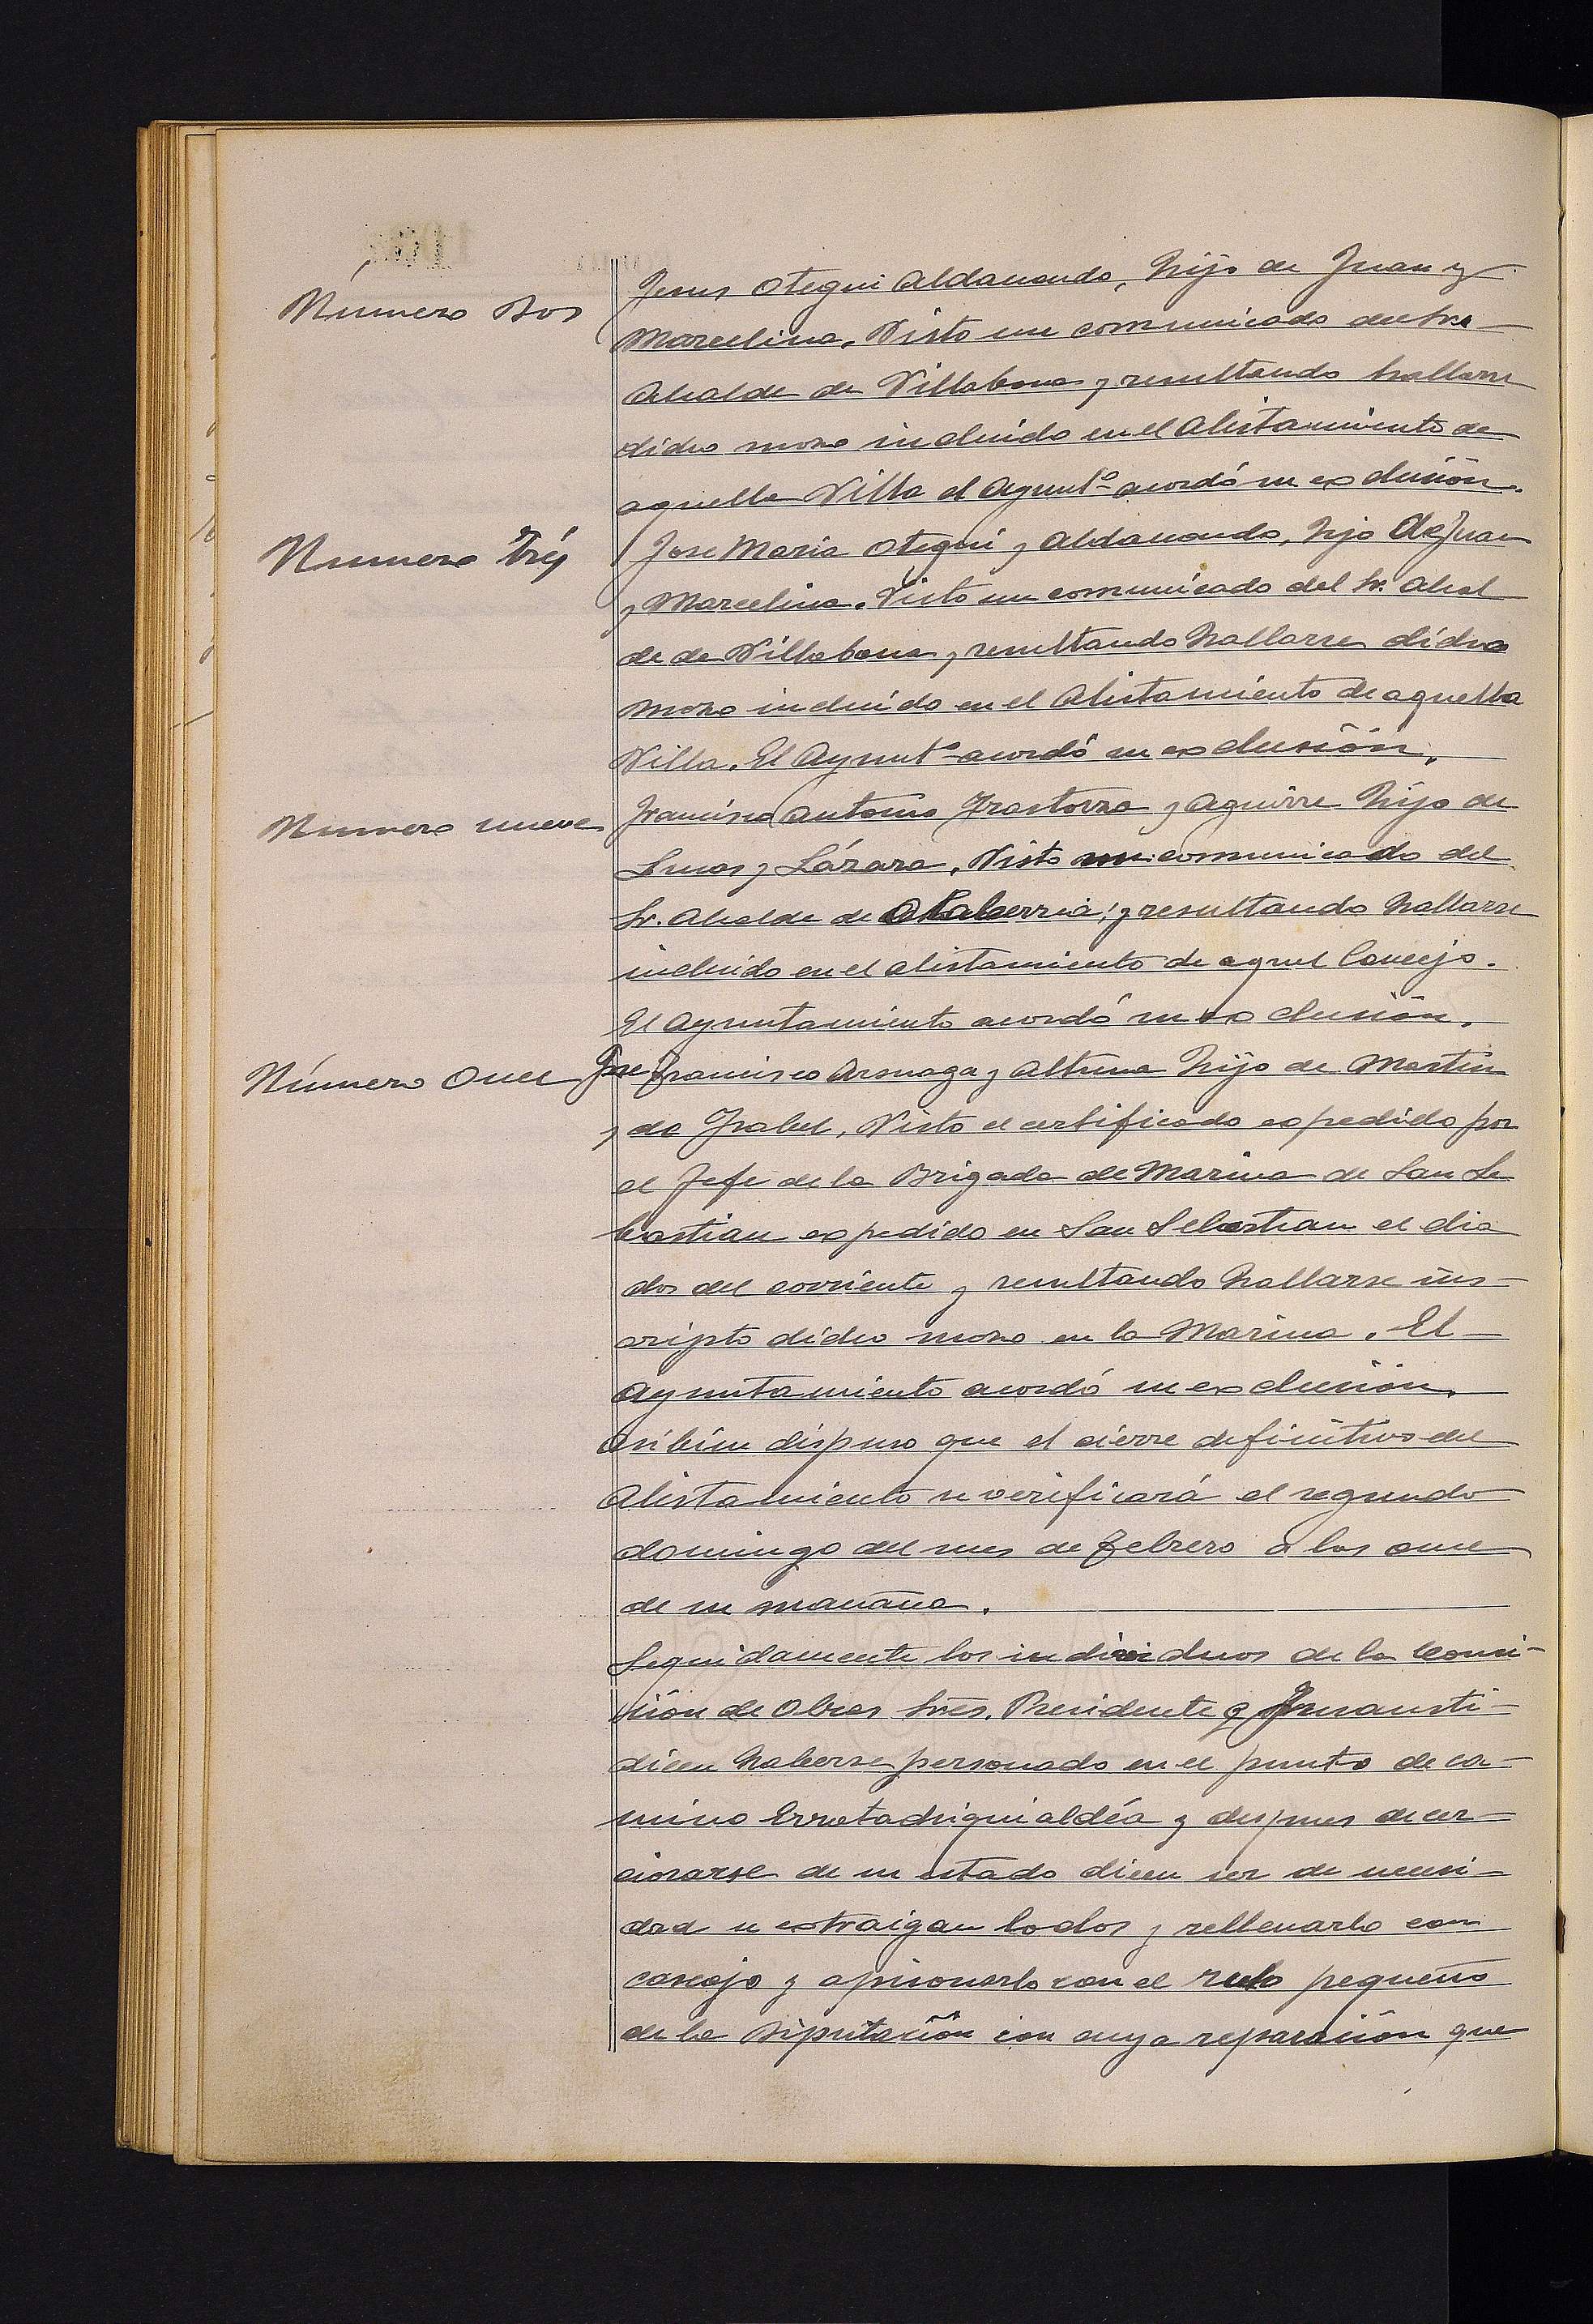 Número Dos
Jesus Otegui Aldanondo, hijo de Juan y
Marcelina. Visto un comunicado del Sr.
Alcalde de Villabona y resultando hallarse
dicho mozo incluido en el Alistamiento de
aquella Villa el Ayuntº acordó su exclusión.
Numero Trés
Jose Maria Otegui y Aldanondo, hijo de Juan
y Marcelina. Visto un comunicado del Sr. Alcal
de de Villabona y resultando hallarse dicho
mozo incluido en el Alistamiento de aquella
Villa. El Ayuntº acordó su exclusión.
Numero nueve
Francisco Antonio Irastorza y Aguirre hijo de
Lucas y Lázara. Visto un comunicado del
Sr. Alcalde de Olaberria, y resultando hallarse
incluido en el alistamiento de aquel Concejo.
El Ayuntamiento acordó su exclusión.
Número Once
Jose Francisco Arsuaga y Altuna hijo de Martin
y de Isabel, Visto el certificado expedido por
el Jefe de la Brigada de Marina de San Se
bastian expedido en San Sebastian el dia
dos del corriente y resultando hallarse ins-
cripto dicho mozo en la Marina. El
Ayuntamiento acordó su exclusión.
Asibien dispuso que el cierre definitivo del
Alistamiento se verificará el segundo
domingo del mes de Febrero a las once
de su mañana.
Seguidamente los individuos de la Comi-
sión de Obras Sres. Presidente é
dicen haberse personado en el punto de ca-
mino Errotachiqui aldéa y despues de cer-
ciorarse de su estado dicen ser de necesi-
dad se extraigan lodos y rellenarlo con
cascajo y apisonarlo con el rulo pequeño
de la Diputación con cuya reparación que